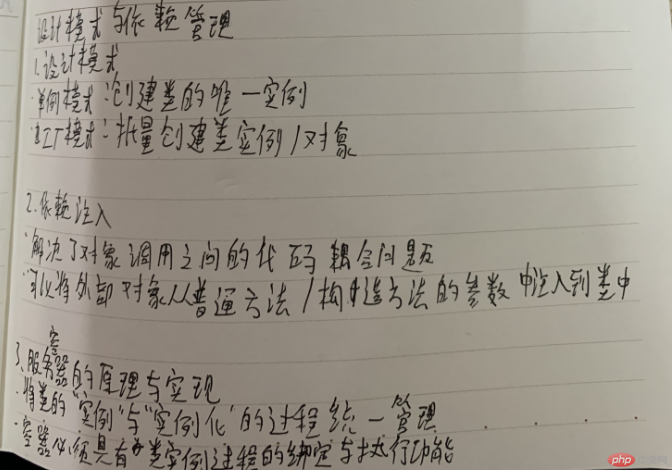 设计模式与依赖管理
1.设计模式
·单例模式:创建类的唯一实例
·工厂模式:批量创建类实例/对象
2.依赖注入
·解决了对象调用之间的代码耦合问题
·可以将外部对象从普通方法/构造方法的参数中注入到类中
3.服务容器的原理与实现
·将类的"实例"与"实例化"的过程统一管理
·容器必须具有类实例过程的绑定与执行功能
php